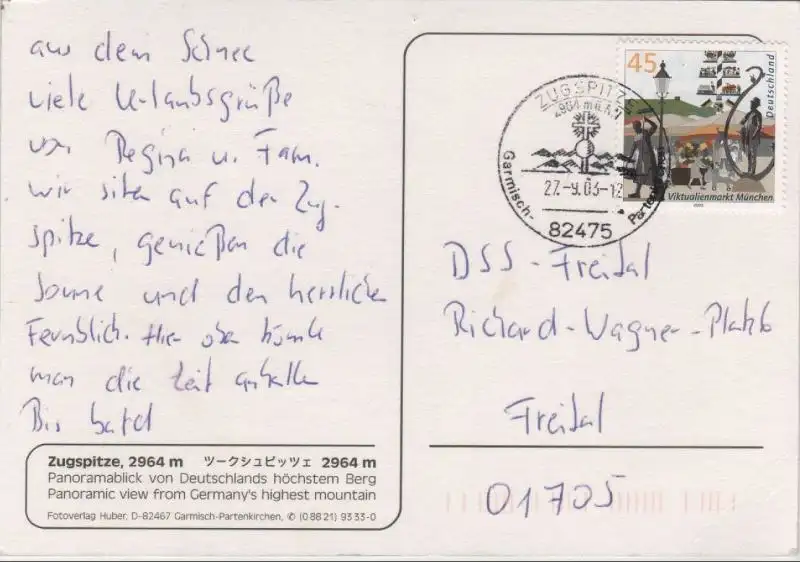 aus dem Schnee
viele Urlaubsgrüße
von Regina u. Fam.
wir sitzen auf der Zug-
spitze, genießen die
Sonne und den herrlichen
Fernblick. Hier oben könnte
man die Zeit anhalten
Bis bald
Zugspitze, 2964 m ツークシュピッツェ 2964 m
Panoramablick von Deutschlands höchstem Berg
Panoramic view from Germany's highest mountain
Fotoverlag Huber, D-82467 Garmisch-Partenkirchen, ✆ (0 88 21) 93 33-0
ZUGSPITZE
2964 m ü.N.N
27.-9.03-12
Garmisch-Partenkirchen
82475
45
Deutschland
Viktualienmarkt München
2003
DSS - Freital
Richard-Wagner-Platz 6
Freital
01705